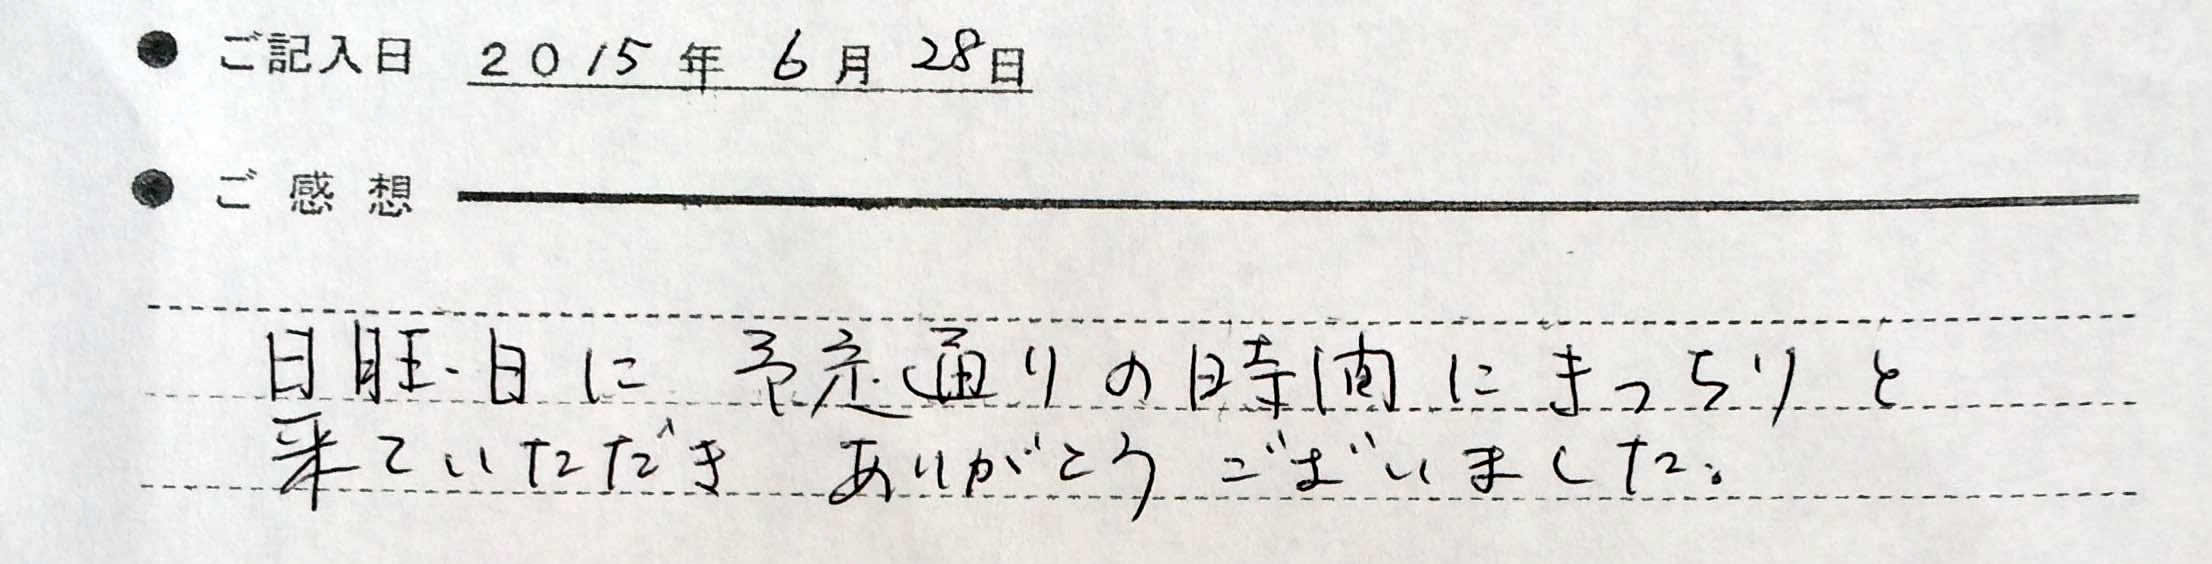 ● ご記入日 2015年 6月 28日
● ご感想
日曜日に 予定通りの時間にきっちりと
来ていただき ありがとうございました。